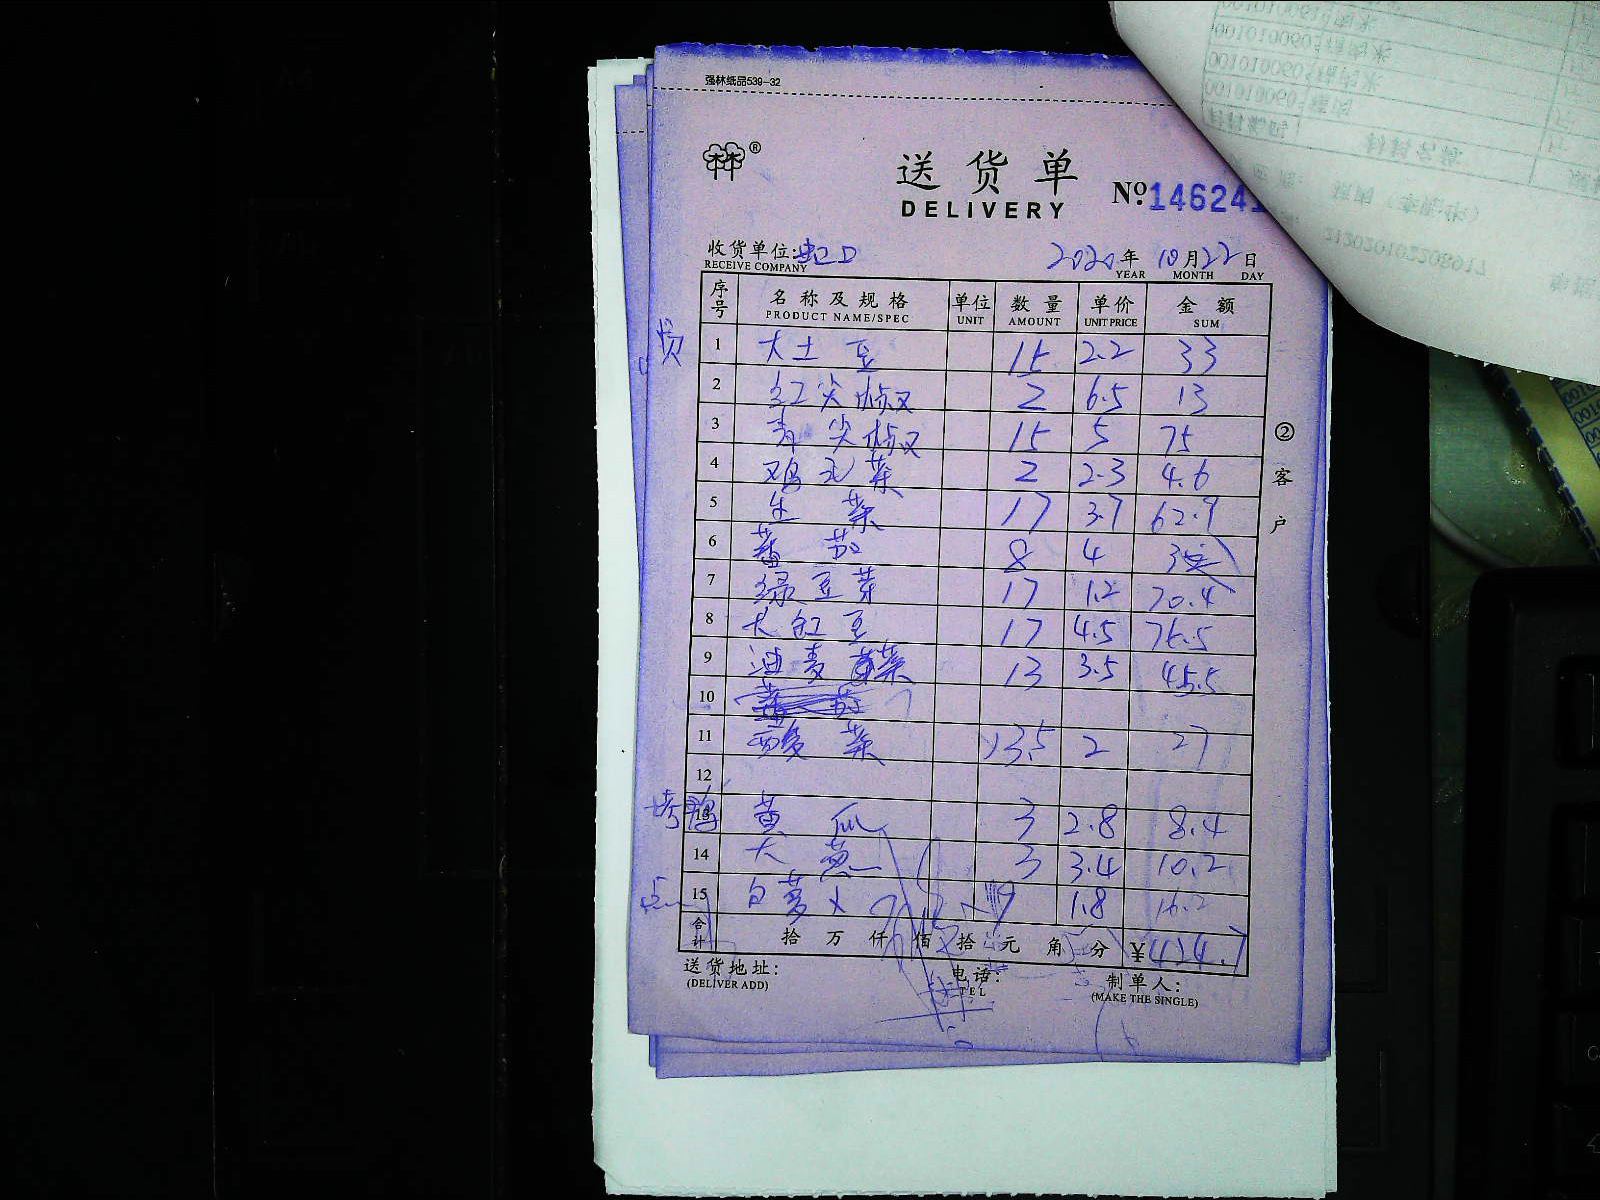 强林纸品539-32
林®
送货单
DELIVERY
№14624
收货单位:虹口 2020年10月22日
RECEIVE COMPANY YEAR MONTH DAY
序号 名称及规格 单位 数量 单价 金额
PRODUCT NAME/SPEC UNIT AMOUNT UNIT PRICE SUM
1 大土豆 15 2.2 33
2 红尖椒 2 6.5 13
3 青尖椒 15 5 75
4 鸡毛菜 2 2.3 4.6
5 生菜 17 3.7 62.9
6 蕃茄 8 4
7 绿豆芽 17 1.2 20.4
8 大缸豆 17 4.5 76.5
9 油麦菜 13 3.5 45.5
10
11 酸菜 13.5 2 27
12
烤鸭 13 黄瓜 3 2.8 8.4
14 大葱 3 3.4 10.2
15 白萝卜 9 1.8 16.2
合计 拾万仟佰拾元角分 ¥424.7
送货地址: 电话: 制单人:
(DELIVER ADD) TEL (MAKE THE SINGLE)
②客户